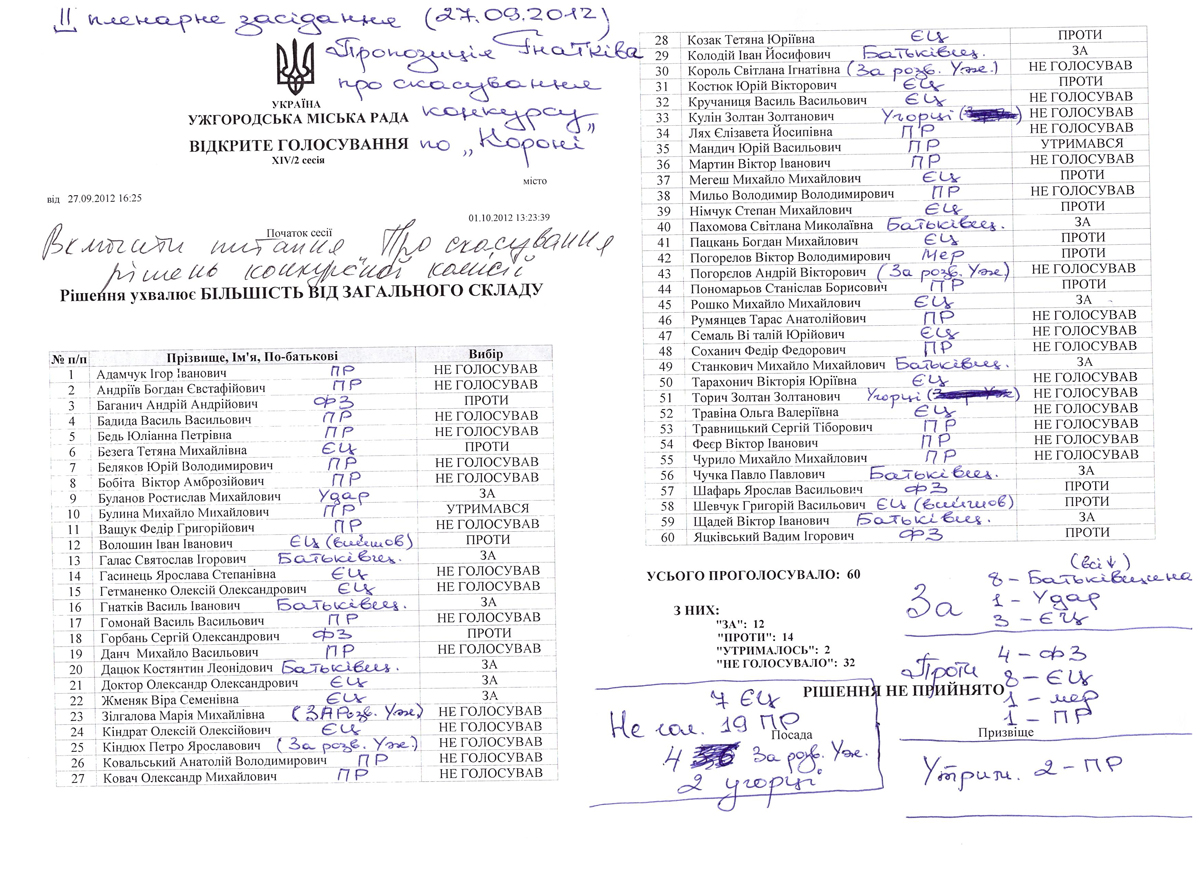 II пленарне засідання (27.09.2012)
Пропозиція Гнатківа
про скасування
конкурсу
по „Короні"
УКРАЇНА
УЖГОРОДСЬКА МІСЬКА РАДА
ВІДКРИТЕ ГОЛОСУВАННЯ
XIV/2 сесія
місто
від 27.09.2012 16:25
01.10.2012 13:23:39
Початок сесії
Включити питання „Про скасування
рішень конкурсної комісії
Рішення ухвалює БІЛЬШІСТЬ ВІД ЗАГАЛЬНОГО СКЛАДУ
№ п/п Прізвище, Ім'я, По-батькові Вибір
1 Адамчук Ігор Іванович ПР НЕ ГОЛОСУВАВ
2 Андріїв Богдан Євстафійович ПР НЕ ГОЛОСУВАВ
3 Баганич Андрій Андрійович ФЗ ПРОТИ
4 Бадида Василь Васильович ПР НЕ ГОЛОСУВАВ
5 Бедь Юліанна Петрівна ПР НЕ ГОЛОСУВАВ
6 Безега Тетяна Михайлівна ЄЦ ПРОТИ
7 Беляков Юрій Володимирович ПР НЕ ГОЛОСУВАВ
8 Бобіта Віктор Амброзійович ПР НЕ ГОЛОСУВАВ
9 Буланов Ростислав Михайлович Удар ЗА
10 Булина Михайло Михайлович ПР УТРИМАВСЯ
11 Ващук Федір Григорійович ПР НЕ ГОЛОСУВАВ
12 Волошин Іван Іванович ЄЦ (вийшов) ПРОТИ
13 Галас Святослав Ігорович Батьківщ. ЗА
14 Гасинець Ярослава Степанівна ЄЦ НЕ ГОЛОСУВАВ
15 Гетманенко Олексій Олександрович ЄЦ НЕ ГОЛОСУВАВ
16 Гнатків Василь Іванович Батьківщ. ЗА
17 Гомонай Василь Васильович ПР НЕ ГОЛОСУВАВ
18 Горбань Сергій Олександрович ФЗ ПРОТИ
19 Данч Михайло Васильович ПР НЕ ГОЛОСУВАВ
20 Дацюк Костянтин Леонідович Батьківщ. ЗА
21 Доктор Олександр Олександрович ЄЦ ЗА
22 Жменяк Віра Семенівна ЄЦ ЗА
23 Зілгалова Марія Михайлівна (ЗА Розв. Уж.) НЕ ГОЛОСУВАВ
24 Кіндрат Олексій Олексійович ЄЦ НЕ ГОЛОСУВАВ
25 Кіндюх Петро Ярославович (За розв. Уж.) НЕ ГОЛОСУВАВ
26 Ковальський Анатолій Володимирович ПР НЕ ГОЛОСУВАВ
27 Ковач Олександр Михайлович ПР НЕ ГОЛОСУВАВ
28 Козак Тетяна Юріївна ЄЦ ПРОТИ
29 Колодій Іван Йосифович Батьківщ. ЗА
30 Король Світлана Ігнатівна (За розв. Уж.) НЕ ГОЛОСУВАВ
31 Костюк Юрій Вікторович ЄЦ ПРОТИ
32 Кручаниця Василь Васильович ЄЦ НЕ ГОЛОСУВАВ
33 Кулін Золтан Золтанович Угорці НЕ ГОЛОСУВАВ
34 Лях Єлізавета Йосипівна ПР НЕ ГОЛОСУВАВ
35 Мандич Юрій Васильович ПР УТРИМАВСЯ
36 Мартин Віктор Іванович ПР НЕ ГОЛОСУВАВ
37 Мегеш Михайло Михайлович ЄЦ ПРОТИ
38 Мильо Володимир Володимирович ПР НЕ ГОЛОСУВАВ
39 Німчук Степан Михайлович ЄЦ ПРОТИ
40 Пахомова Світлана Миколаївна Батьківщ. ЗА
41 Пацкань Богдан Михайлович ЄЦ ПРОТИ
42 Погорелов Віктор Володимирович Мер ПРОТИ
43 Погорєлов Андрій Вікторович (За розв. Уж) НЕ ГОЛОСУВАВ
44 Пономарьов Станіслав Борисович ПР ПРОТИ
45 Рошко Михайло Михайлович ЄЦ ЗА
46 Румянцев Тарас Анатолійович ПР НЕ ГОЛОСУВАВ
47 Семаль Ві талій Юрійович ЄЦ НЕ ГОЛОСУВАВ
48 Соханич Федір Федорович ПР НЕ ГОЛОСУВАВ
49 Станкович Михайло Михайлович Батьківщ. ЗА
50 Тарахонич Вікторія Юріївна ЄЦ НЕ ГОЛОСУВАВ
51 Торич Золтан Золтанович Угорці НЕ ГОЛОСУВАВ
52 Травіна Ольга Валеріївна ЄЦ НЕ ГОЛОСУВАВ
53 Травницький Сергій Тіборович ПР НЕ ГОЛОСУВАВ
54 Феєр Віктор Іванович ПР НЕ ГОЛОСУВАВ
55 Чурило Михайло Михайлович ПР НЕ ГОЛОСУВАВ
56 Чучка Павло Павлович Батьківщ. ЗА
57 Шафарь Ярослав Васильович ФЗ ПРОТИ
58 Шевчук Григорій Васильович ЄЦ (вийшов) ПРОТИ
59 Щадей Віктор Іванович Батьківщ. ЗА
60 Яцківський Вадим Ігорович ФЗ ПРОТИ
УСЬОГО ПРОГОЛОСУВАЛО: 60
З НИХ:
"ЗА": 12
"ПРОТИ": 14
"УТРИМАЛОСЬ": 2
"НЕ ГОЛОСУВАЛО": 32
(всі↓)
За 8 - Батьківщина
1 - Удар
3 - ЄЦ
Проти 4 - ФЗ
8 - ЄЦ
1 - мер
1 - ПР
РІШЕННЯ НЕ ПРИЙНЯТО
Посада Прізвище
7 ЄЦ
Не гол. 19 ПР
4 За розв. Уж.
2 угорці
Утрим. 2 - ПР